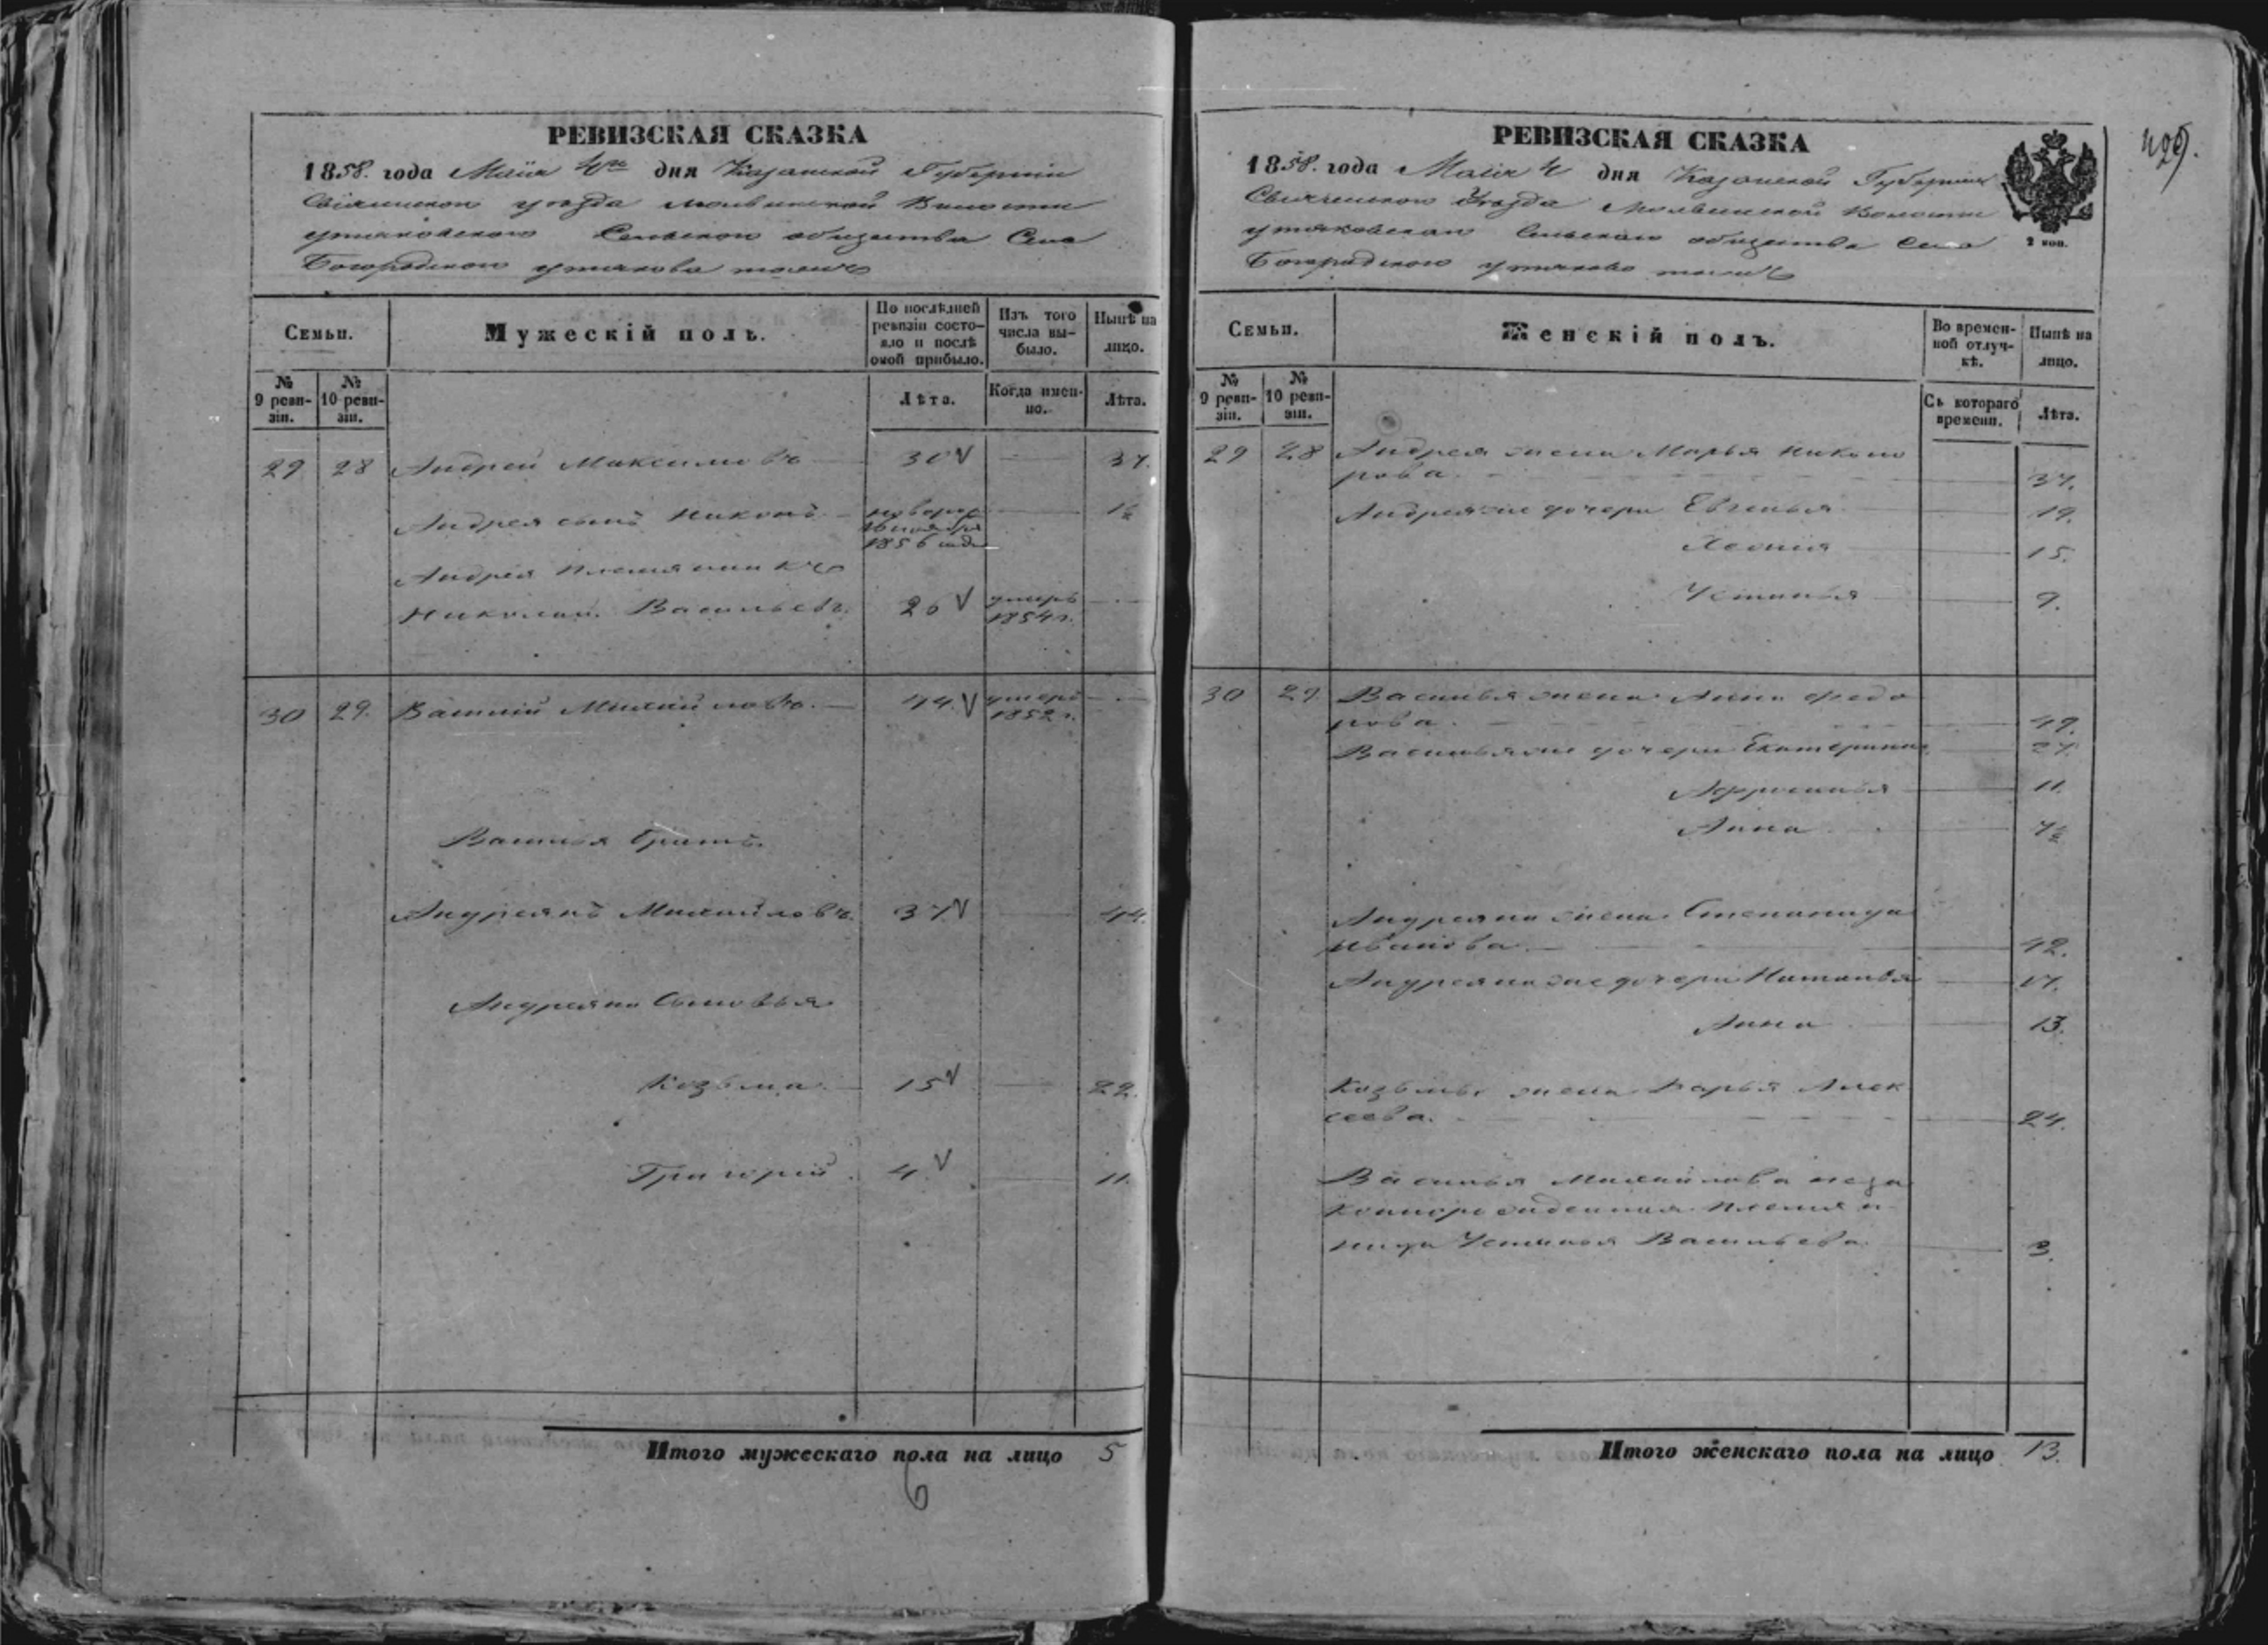 РЕВИЗСКАЯ СКАЗКА
1858. года Маия 4го дня Казанской Губернии
Свіяжскаго уезда Молвинской Волости
утяковскаго Сельскаго общества Села
Богородскаго утякова тожъ
Семьи.
Мужескій полъ.
По послѣдней ревизіи состояло и послѣ оной прибыло.
Изъ того числа выбыло.
Нынѣ на лицо.
№ 9 ревизіи.
№ 10 ревизіи.
Лѣта.
Когда именно.
Лѣта.
29 28 Андрей Максимовъ 30 37.
Андрея сынъ Никонъ новорож 1½
ноября
1856 года
Андрея племянникъ
Николай Васильевъ 26 умеръ
1854 г.
30 29. Василій Михайловъ. 44. умеръ
1852 г.
Василья братъ.
Андреянъ Михайловъ. 37 44.
Андреяна Сыновья
Козьма 15 22.
Григорій. 4. 11.
Итого мужескаго пола на лицо 5
6
429.
РЕВИЗСКАЯ СКАЗКА
1858. года Маия 4 дня Казанской Губернии
Свіяжскаго Уезда Молвинской Волости
утяковскаго Сельскаго общества Села
Богородскаго утяково тожъ
2 коп.
Семьи.
Женскій полъ.
Во временной отлучкѣ.
Нынѣ на лицо.
№ 9 ревизіи.
№ 10 ревизіи.
Съ котораго времени.
Лѣта.
29 28 Андрея жена Марья Никоно
рова. 37.
Андрея же дочери Евгенья 19.
15.
Устинья 9.
30 29 Василья жена Анна Федо
рова. 49.
Василья же дочери Екатерина 27.
Афросинья 11.
Анна 7½
Андреяна жена Степанида
Иванова 42.
Андреяна же дочери Наталья 17.
Анна 13.
Козьмы жена Дарья Алек
сеева. 24.
Василья Михайлова неза
коннорожденная племян
ница Устинья Васильева. 3.
Итого женскаго пола на лицо 13.